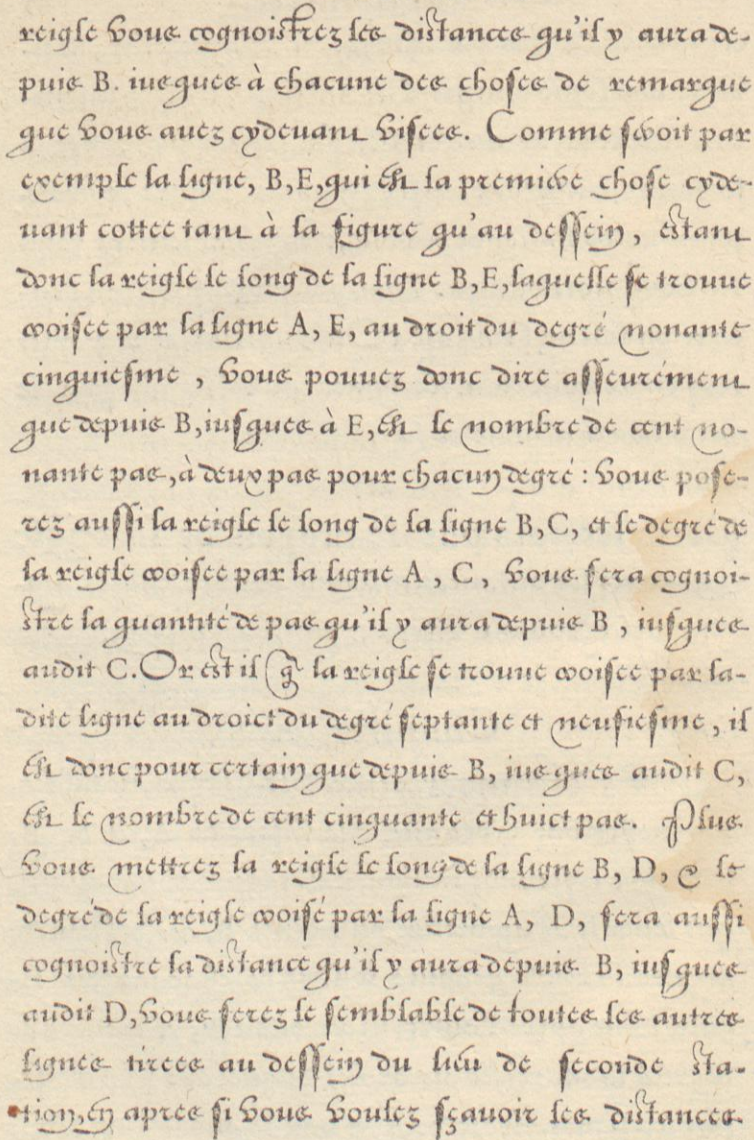 reigle vous cognoistrez les distances qu'il y aura de-
puis B. iusques à chacune des choses de remarque
que vous auez cydeuant visees. Comme seroit par
exemple la ligne, B,E,qui est la premiere chose cyde-
uant cottee tant à la figure qu'au dessein, estant
donc la reigle le long de la ligne B,E,laquelle se trouue
croisee par la ligne A, E, au droit du degré nonante
cinquiesme , vous pouuez donc dire asseurément
que depuis B,iusques à E,est le nombre de cent no-
nante pas,à deux pas pour chacun degré : vous pose-
rez aussi la reigle le long de la ligne B,C, et le degré de
la reigle croisee par la ligne A , C , vous fera cognoi-
stre la quantité de pas qu'il y aura depuis B , iusques
audit C.Or est il q̃ la reigle se trouue croisee par la-
dite ligne au droict du degré septante et neufiesme, il
est donc pour certain que depuis B, iusques audit C,
est le nombre de cent cinquante et huict pas. Plus
vous mettrez la reigle le long de la ligne B, D, & le
degré de la reigle croisé par la ligne A, D, fera aussi
cognoistre la distance qu'il y aura depuis B, iusques
audit D,vous ferez le semblable de toutes les autres
lignes tirees au dessein du lieu de seconde sta-
tion,en apres si vous voulez sçauoir les distances